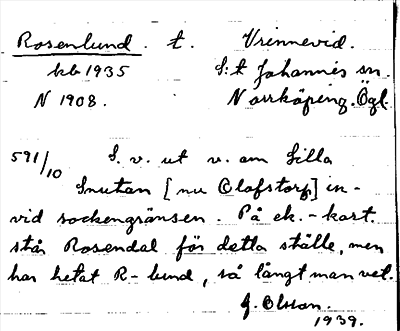 Rosenlund. t. Vrinnevid.
kb 1935 S:t Johannis sn.
N 1908. Norrköping. Ögl.
591/10 S. v. ut v. om Lilla
Snutan [nu Olofstorp] in-
vid sockengränsen. På ek.-kart.
står Rosendal för detta ställe, men
har hetat R-lund, så långt man vet.
J. Olson.
1939.